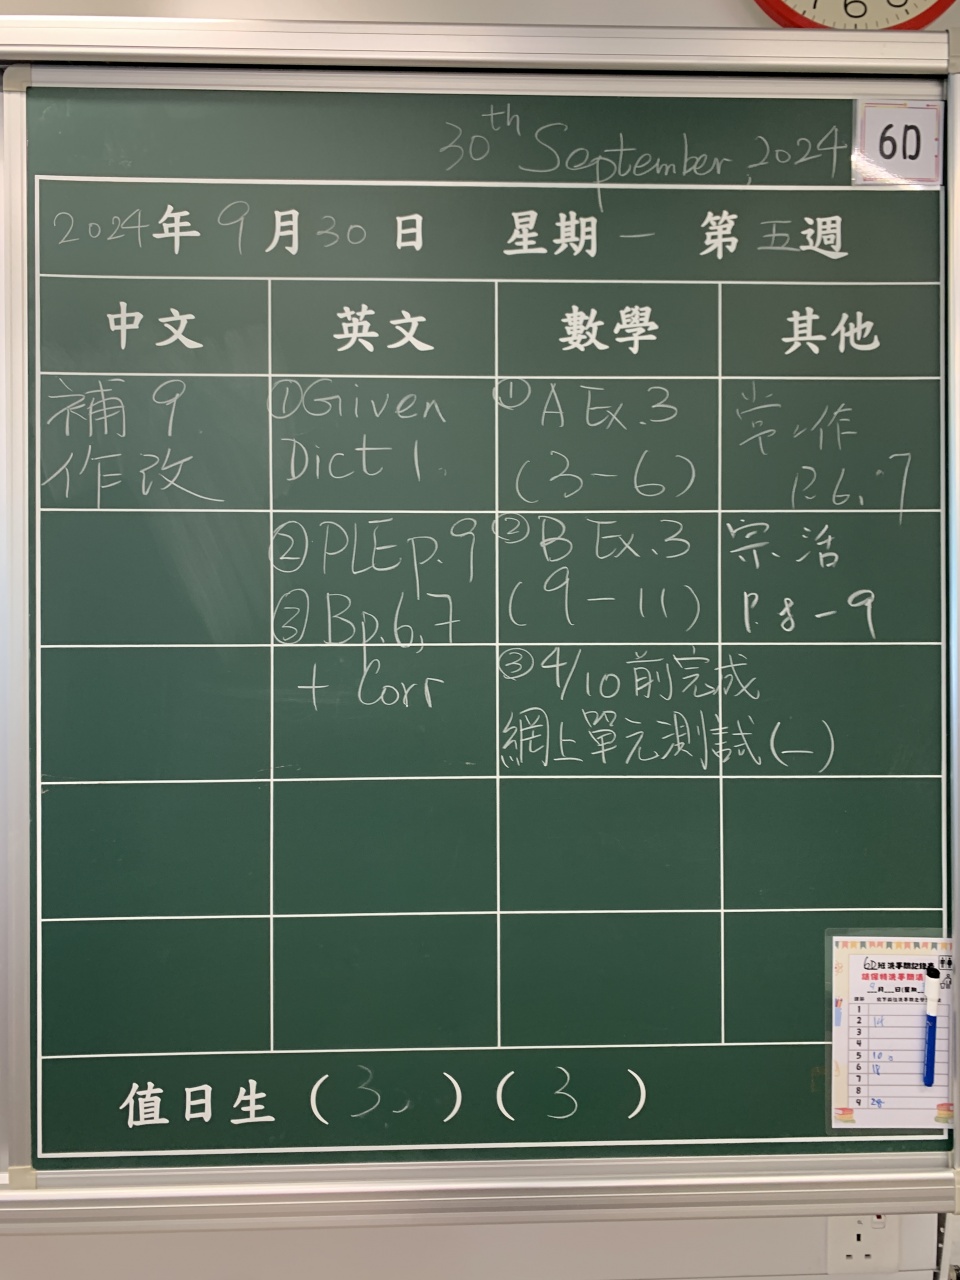 30th September, 2024
6D
2024年9月30日 星期一 第五週
中文 英文 數學 其他
補9
作改
①Given
Dict 1.
②PLE p.9
③Bp.6,7
+ Corr
①A Ex.3
(3-6)
②B Ex.3
(9-11)
③4/10前完成
網上單元測試(一)
常.作
P.6,7
宗.活
P.8-9
值日生(3.)(3)
6D班
1
2
3
4
5 10
6 18
7
8
9 28